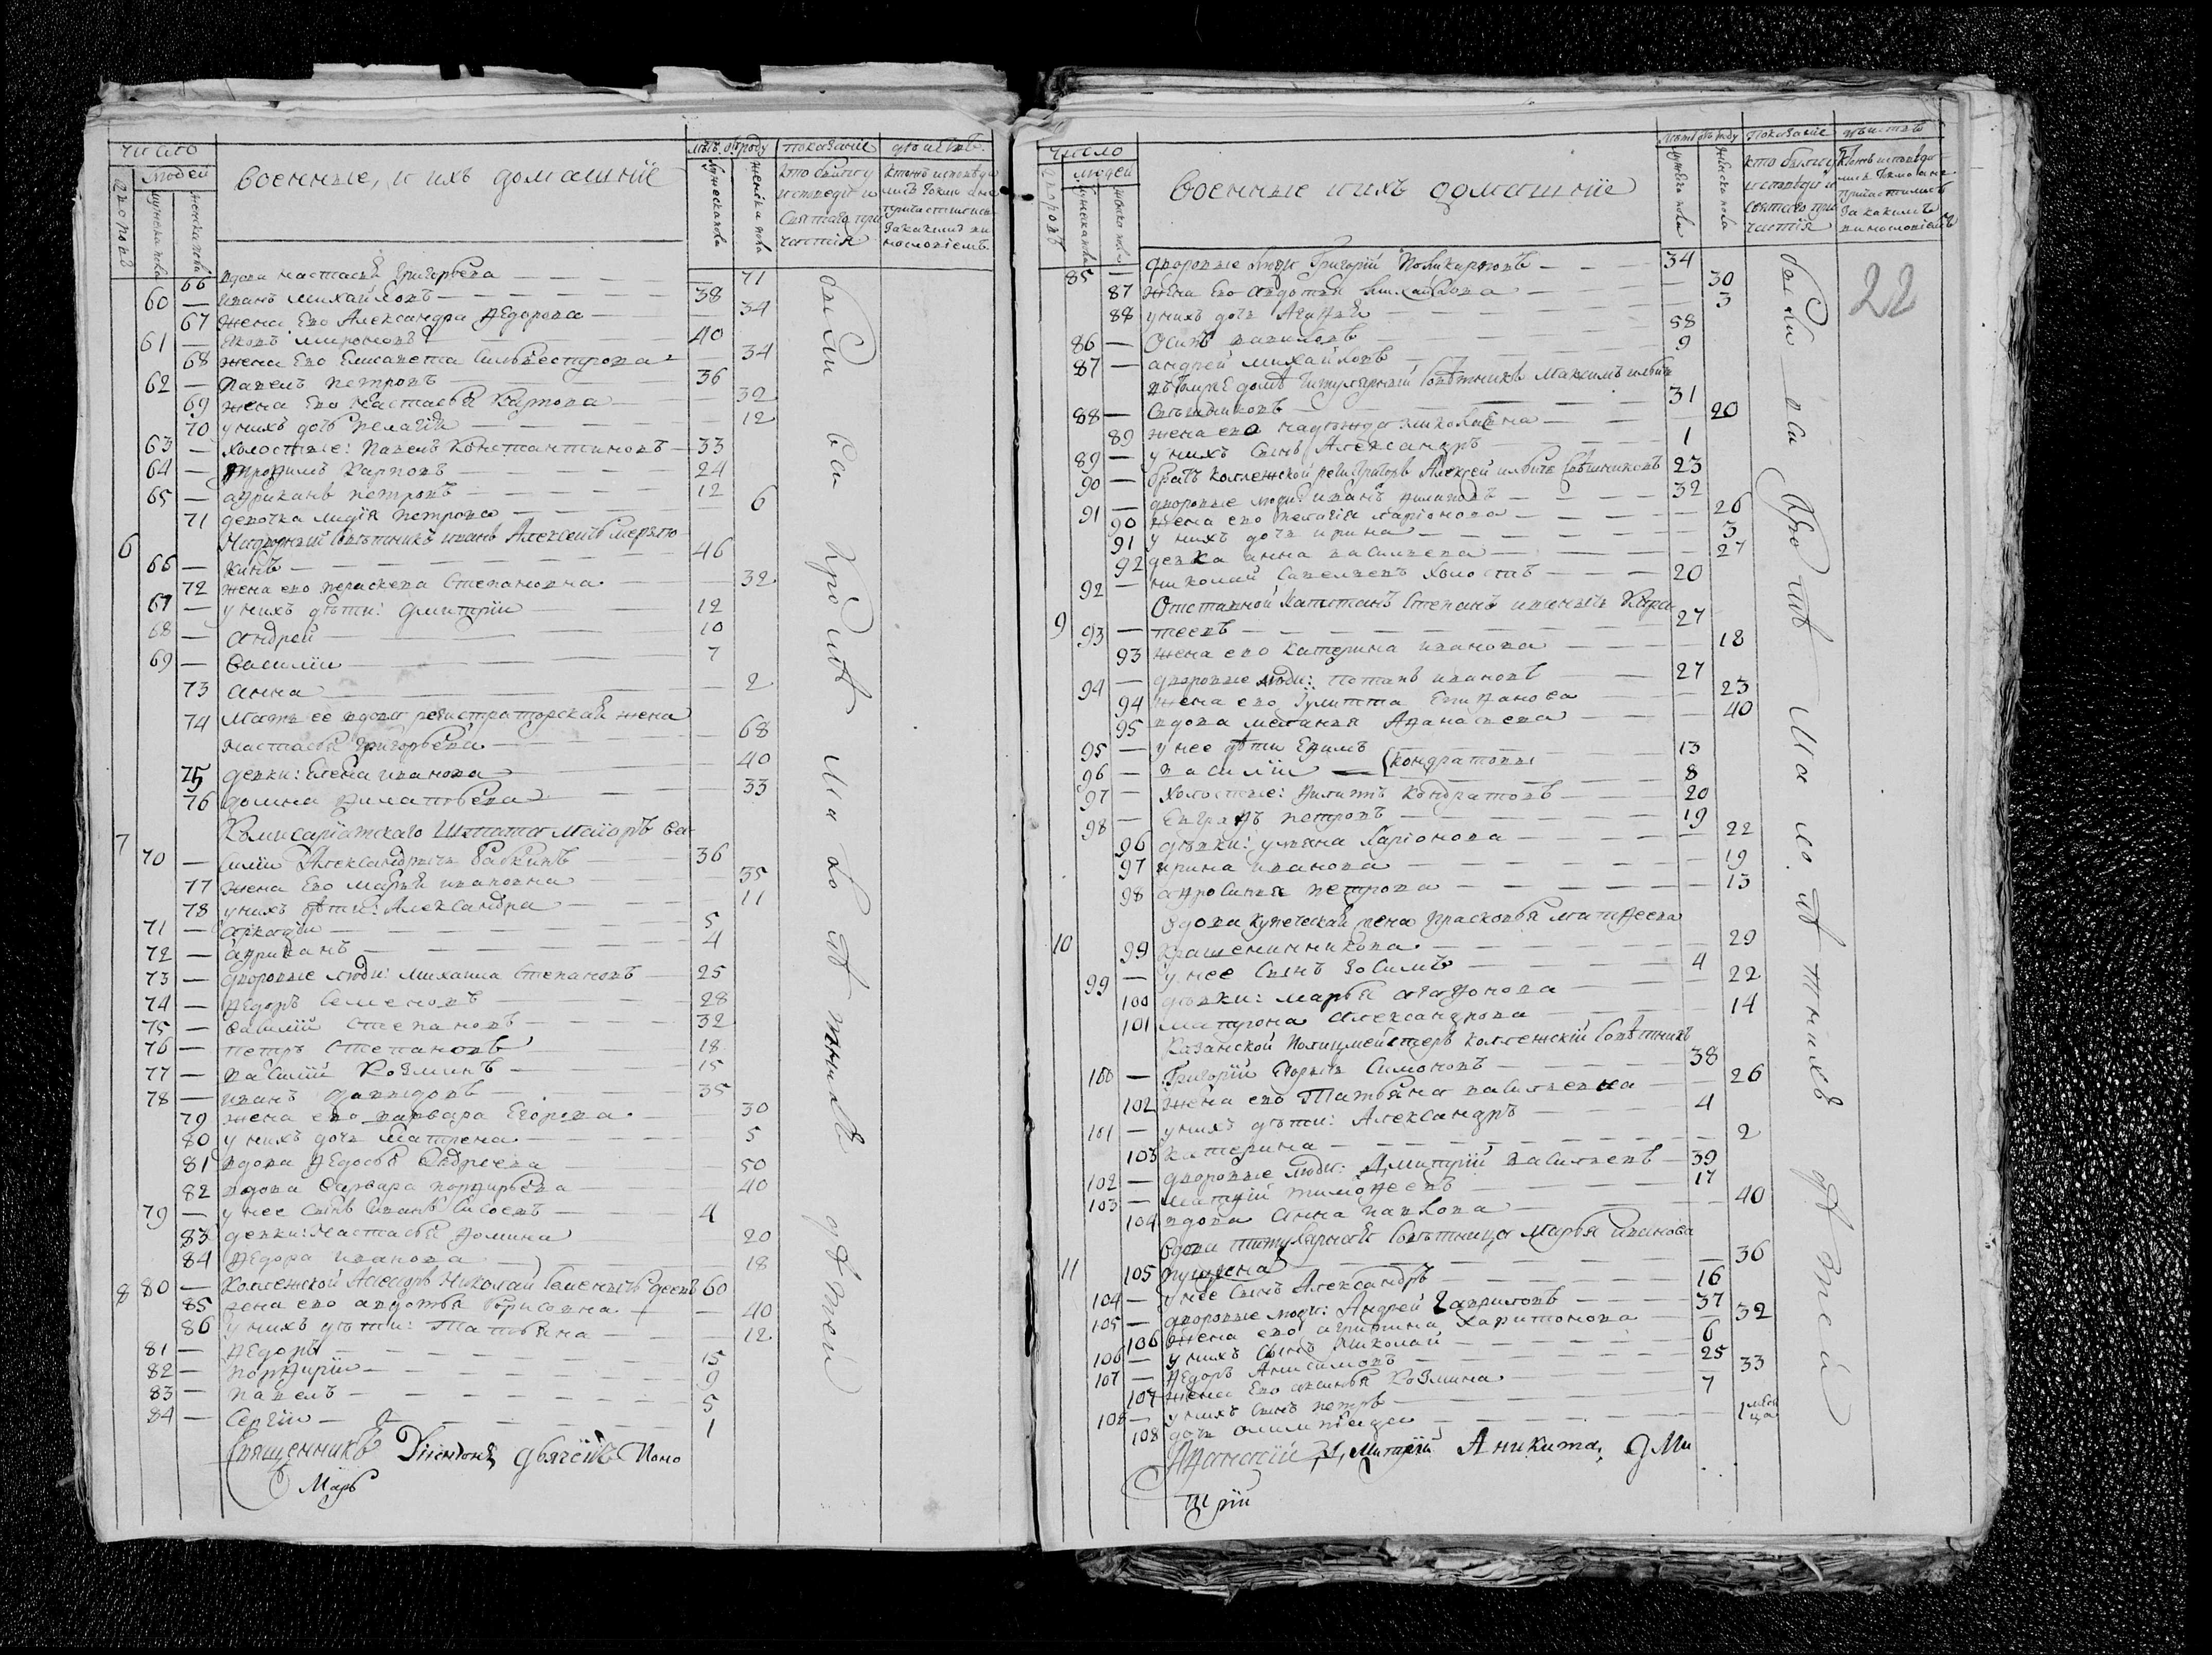 число
людей
дворовъ
мужеска пола
женска пола
военные, и ихъ домашнїе
лѣтъ от роду
мужеска пола
женска пола
показанїе
дѣйствъ
кто былъ у
исповеди и
святаго при
частїя
66 вдова настасья Григорьева — 71
60 — иванъ михайловъ — 38
67 жена ево Александра Ѳедорова — 34
61 — яковъ мироновъ — 40
68 жена ево Елисавета Сильвестрова — 34
62 — павелъ петровъ — 36
69 жена ево Настасья Карпова — 32
70 у нихъ дочь пелагѣя — 12
63 — холостые: павелъ константиновъ — 33
64 — трофимъ Карповъ — 24
65 — андриканъ петровъ — 12
71 девочка лидїя петрова — 6
6 Надворный совѣтникъ иванъ Алексеичь мерлю
66 — кинъ — 46
72 жена ево пераскева Степановна — 32
67 — у нихъ дѣти: дмитрїи — 12
68 — андрей — 10
69 — василїи — 7
73 анна — 2
74 мать ее вдова регистраторская жена
настасья григорьева — 68
75 девки: елена иванова — 40
76 домна филатьева — 33
7 Комисарїатскаго Штата маїоръ ва
70 — силїи Александрычь бабкинъ — 36
77 жена ево марья ивановна — 35
78 у нихъ дѣти: Александра — 11
71 — аркадїи — 5
72 — андриканъ — 4
73 — дворовые люди: михаила Степановъ — 25
74 — Ѳедоръ Семеновъ — 28
75 — василїй степановъ — 32
76 — петръ степановъ — 18
77 — василїй Козминъ — 15
78 — иванъ давыдовъ — 35
79 жена ево варвара Егорова — 30
80 у нихъ дочь матрена — 5
81 вдова Ѳедосья андреева — 50
82 вдова варвара порфирьева — 40
79 — у нее сынъ иванъ Сысоевъ — 4
83 девки: Настасья фомина — 20
84 Ѳедора иванова — 18
8 80 — Коллежской Асессоръ Николай Семенычь — 60
85 жена ево авдотья борисовна — 40
86 у нихъ дѣти: татьяна — 12
81 — Ѳедоръ — 15
82 — порфирїи — 9
83 — павелъ — 5
84 — Сергїи — 1
были вси кромѣ малолѣтныхъ дѣтей
священникъ дьячекъ Поно
Марь
число
людей
дворовъ
мужеска пола
женска пола
военные и ихъ домашнїе
лѣтъ отъ роду
мужеска пола
женска пола
показанїе
дѣйствъ
кто былъ у
исповеди и
святаго при
частїя
22
85 — дворовые люди Григорїй Поликарповъ — 34
87 жена ево авдотья михайлова — 30
88 у нихъ дочь Агафья — 3
86 — Осипъ вавиловъ — 58
87 — андрей михайловъ — 9
въ томже домѣ титулярный совѣтникъ Максимъ ильичь
88 — свѣшниковъ — 31
89 жена ево надежда николаевна — 20
89 — у нихъ сынъ Александръ — 1
90 — братъ коллежской регистраторъ Алексей ильичь свѣшниковъ 23
91 — дворовые люди иванъ филиповъ — 32
90 жена ево пелагїя ларїонова — 26
91 у нихъ дочь ирина — 3
92 девка анна васильева — 27
92 — николай Савельевъ холостъ — 20
9 Отставной капитанъ степанъ иванычь Кара
93 — теевъ — 27
93 жена ево катерина иванова — 18
94 — дворовые люди: потапъ ивановъ — 27
94 жена ево Улитта Епифанова — 23
95 вдова меланья Афанасьева — 40
95 — у нее дѣти Ефимъ — 13
96 — василїи — кондратовы — 8
97 — холостые: филипъ кондратовъ — 20
98 — евграфъ петровъ — 19
96 дѣвки: ульяна ларїонова — 22
97 ирина иванова — 19
98 афросинья петрова — 13
вдова купеческая жена Прасковья матвеева
10 99 Крашенинникова — 29
99 — у нее сынъ зосимъ — 4
100 дѣвки: марья агафонова — 22
101 матрона александрова — 14
Казанской полицмейстеръ коллежскїй совѣтникъ
100 — Григорїй егорычь Симоновъ — 38
102 жена ево Татьяна васильевна — 26
101 — у нихъ дѣти: Александръ — 4
103 катерина — 2
102 — дворовые люди: дмитрїй васильевъ — 39
103 — матвїй тимофеевъ — 17
104 вдова анна павлова — 40
вдова титулярная совѣтница Марья иванова
11 105 пушкена — 36
104 — у нее сынъ Александръ — 16
105 — дворовые люди: Андрей гавриловъ — 37
106 жена ево агрипина харитонова — 32
106 — у нихъ сынъ николай — 6
107 — Ѳедоръ Анисимовъ — 25
107 жена ево аксинья Козмина — 33
108 — у нихъ сынъ петръ — 7
108 дочь олимпїада — 1 меся
ца
были вси кромѣ малолѣтныхъ дѣтей
Афанасїй Димитрїй Аникита, дМи
трїи